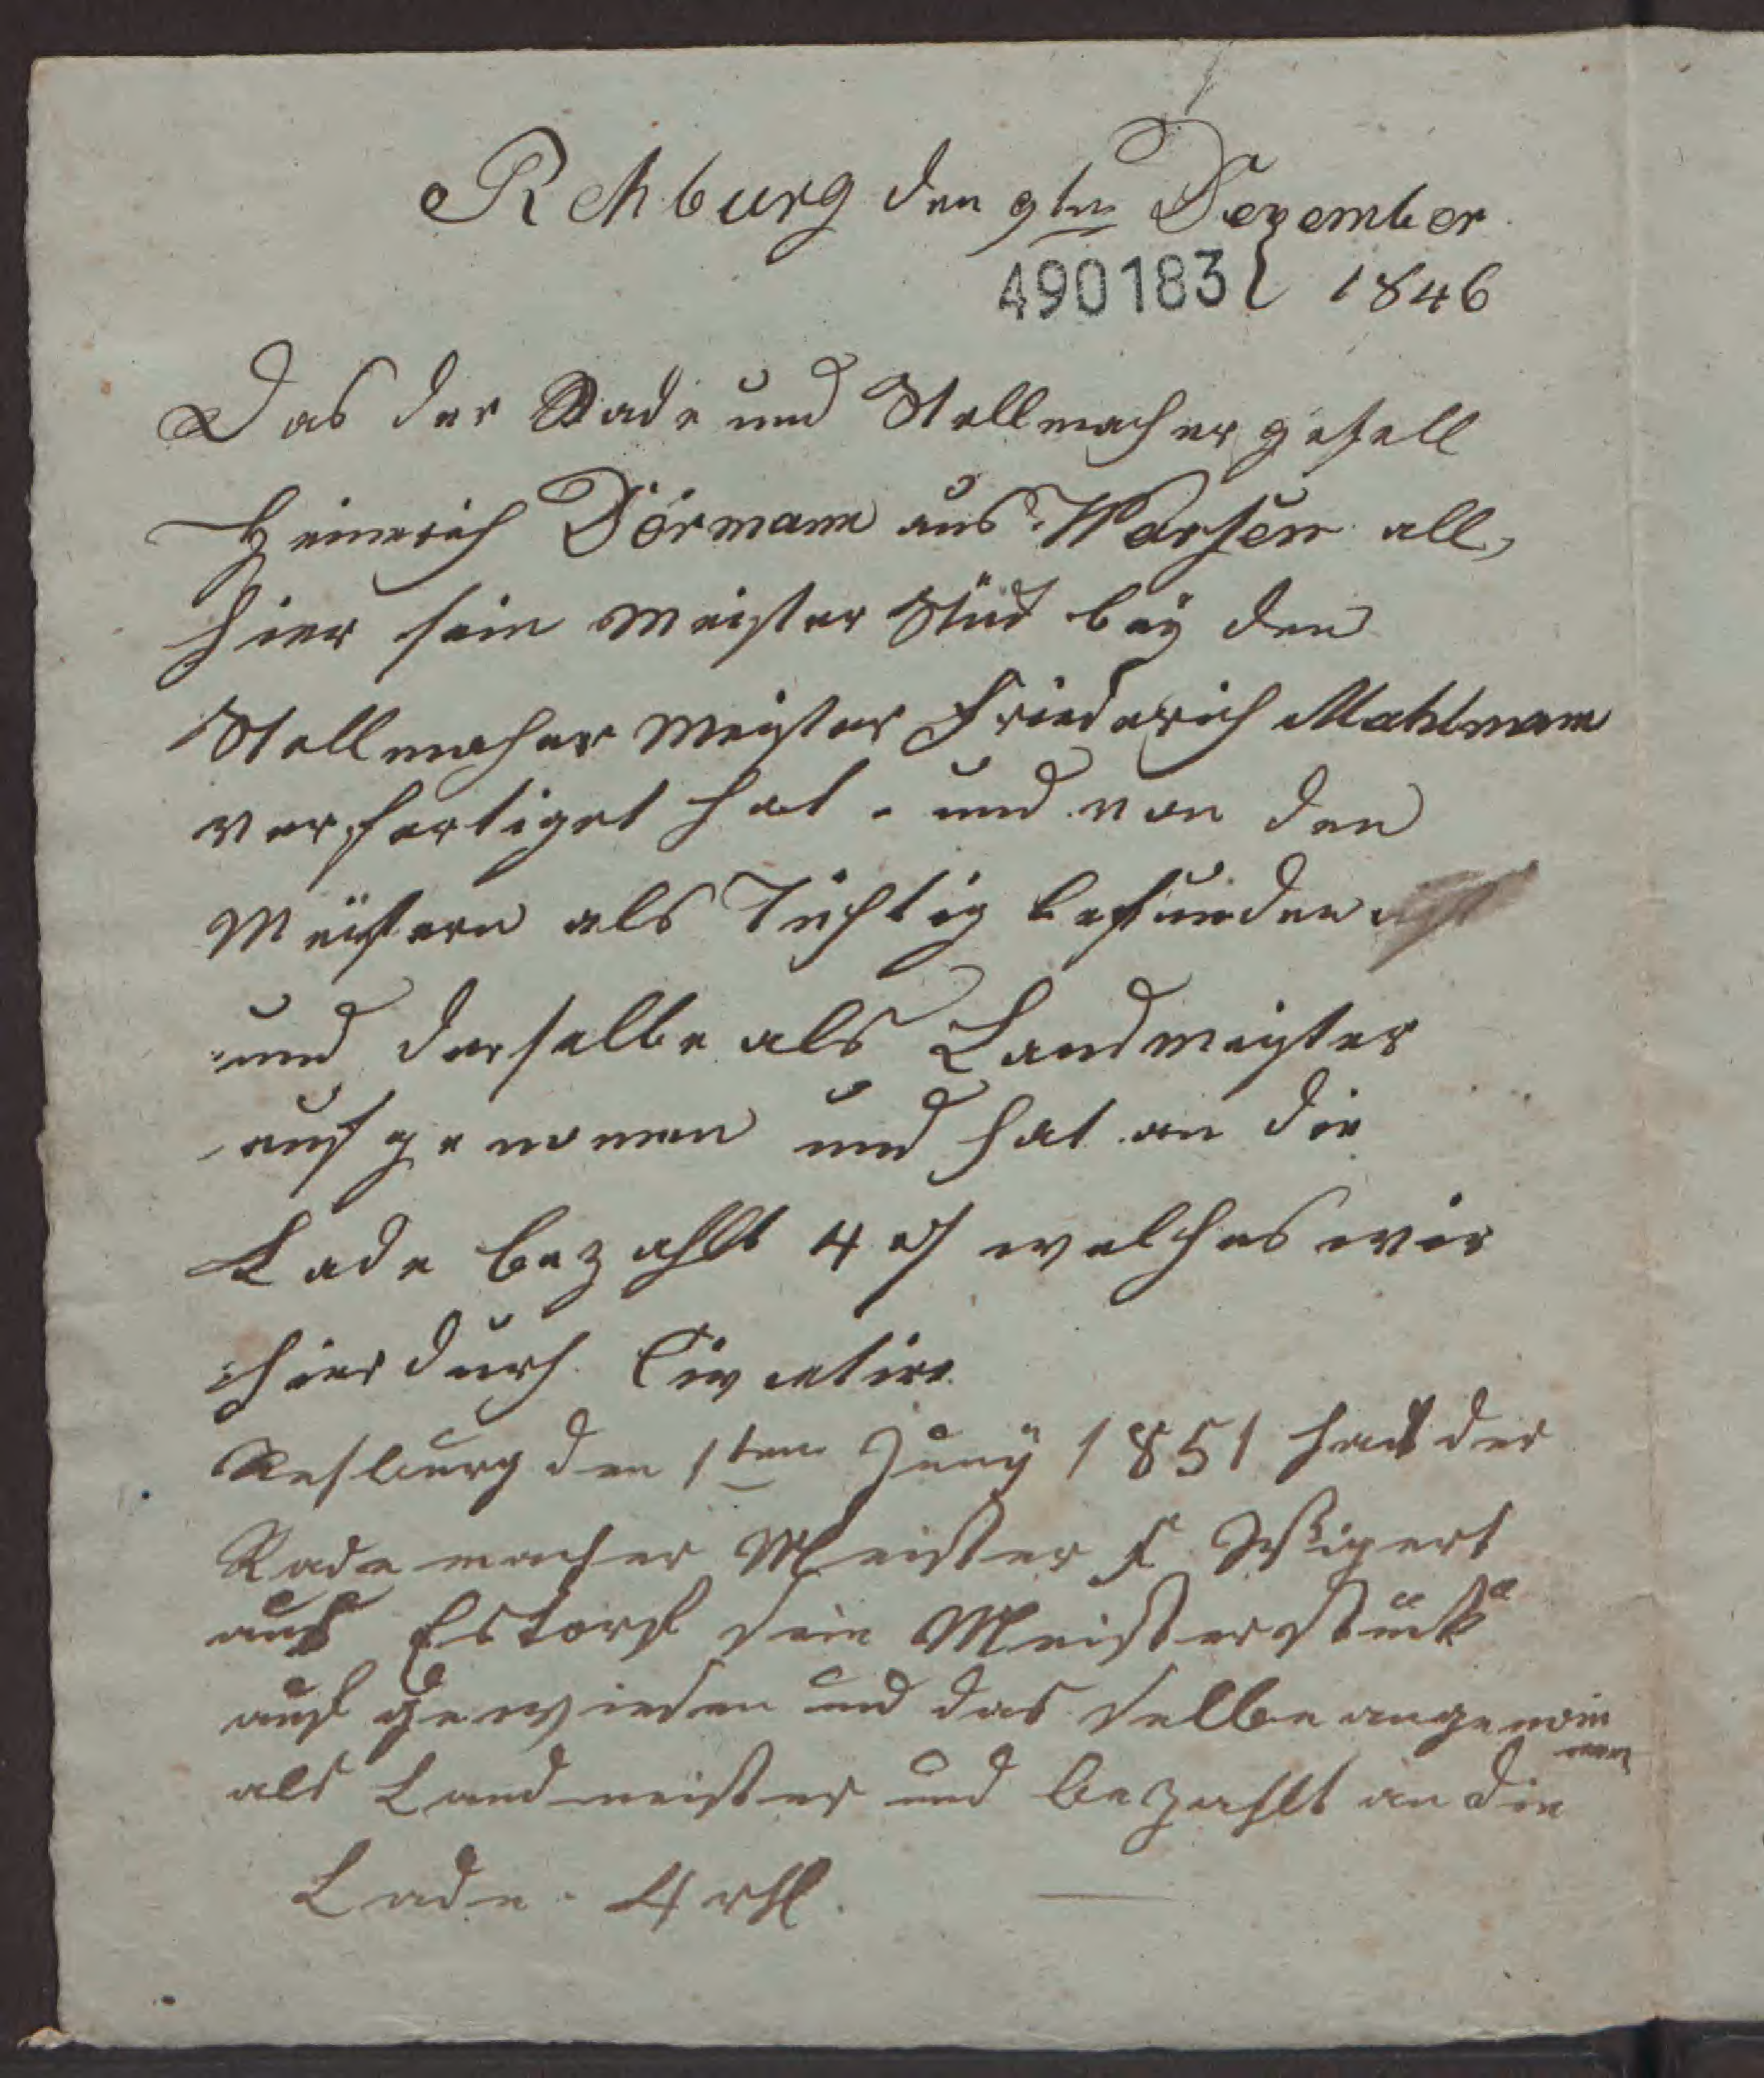 Rehburg den 9ten Dezember
490183 1846
Das der Rade und Stellmacher gesell
Heinrich Dörmann aus Warsen all,
hier sein Meister Stük beÿ den
Stellmacher Meister Friederich Mahlmann
verfertiget hat. und von den
Meistern als Tüchtig befunden ist
und derselbe als Landmeister
aufgenomen und hat an die
Lade bezahlt 4 welches wir
hierdurch
Rehburg den 1ten Junÿ 1851 hat der
Rade macher Meister F.
aus Estorf sein Meisterstück
auf gewiesen und das selbe angenom
men
als Landmeister und bezahlt an die
Lade. 4 rthl.